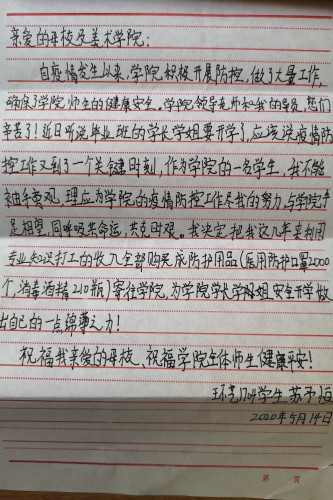 亲爱的母校及美术学院:
自疫情发生以来,学院积极开展防控,做了大量工作,
确保了学院师生的健康安全。学院领导老师和我的导员,您们
辛苦了!近日听说毕业班的学长学姐要开学了,应该说疫情防
控工作又到了一个关键时刻,作为学院的一名学生,我不能
袖手旁观,理应为学院的疫情防控工作尽我的努力,与学院守
望相望,同呼吸共命运,共克时艰。我决定把我这几年来利用
专业知识打工的收入全部购买成防护用品(医用防护口罩2000
个,消毒酒精210瓶)寄往学院,为学院学长学姐安全开学做
出自己的一点绵薄之力!
祝福我亲爱的母校、祝福学院全体师生健康平安!
环艺 学生 苏于恒
2020年5月14日
第 页